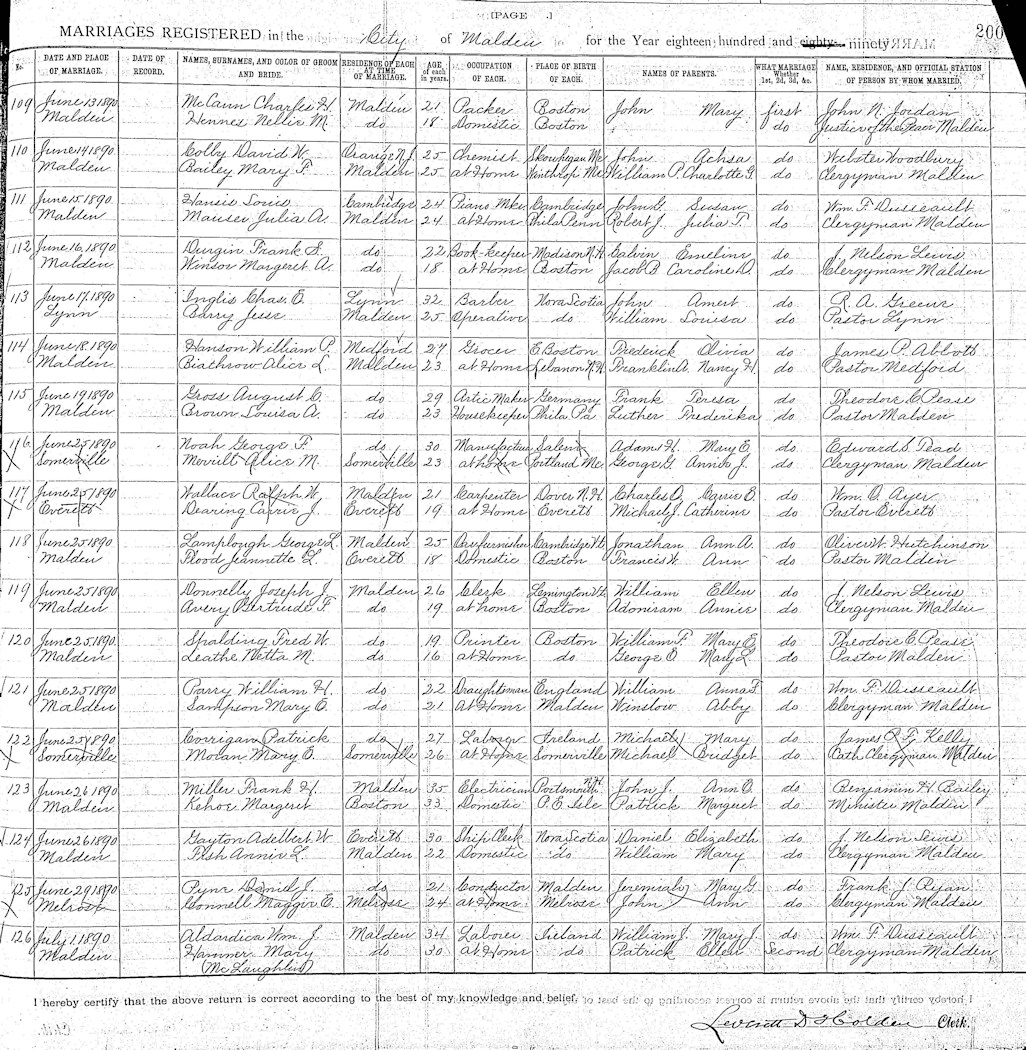 [PAGE .]
MARRIAGES REGISTERED in the City of Malden for the Year eighteen hundred and eighty- ninety 200
No. DATE AND PLACE OF MARRIAGE. DATE OF RECORD. NAMES, SURNAMES, AND COLOR OF GROOM AND BRIDE. RESIDENCE OF EACH AT TIME OF MARRIAGE. AGE of each in years. OCCUPATION OF EACH. PLACE OF BIRTH OF EACH. NAMES OF PARENTS. WHAT MARRIAGE Whether 1st, 2d, 3d, &c. NAME, RESIDENCE, AND OFFICIAL STATION OF PERSON BY WHOM MARRIED.
109 June 13 1890 McCann Charles H. Malden 21 Packer Boston John Mary first John N. Jordan
Malden Hennes Nellie M do 18 Domestic Boston do Justice of the Peace Malden
110 June 14 1890 Colby David W. Orange N.J. 25 Chemist Skowhegan Me John Achsa do Webster Woodbury
Malden Bailey Mary F. Malden 25 at Home Winthrop Me William P. Charlotte G. do Clergyman Malden
111 June 15 1890 Louis Cambridge 24 Piano Mkr Cambridge John G. Susan do Wm. F. Dusseault
Malden Mauser Julia A. Malden 24 at Home Phila Penn Robert J. Julia T. do Clergyman Malden
112 June 16, 1890 Durgin Frank S. do 22 Book-keeper Madison N.H. Calvin Emeline do J. Nelson Lewis
Malden Winsor Margaret A. do 18 at Home Boston Jacob B Caroline D. do Clergyman Malden
113 June 17, 1890 Inglis Chas. E. Lynn 32 Barber Nova Scotia John do R. A. Greene
Lynn Barry Jesse Malden 25 Operative do William Louisa do Pastor Lynn
114 June 18. 1890 Hanson William P. Medford 27 Grocer E. Boston Frederick Olivia do James P. Abbott
Malden Alice L. Malden 23 at Home Lebanon N.H. Franklin A. Nancy H. do Pastor Medford
115 June 19 1890 Gross August C. do 29 Artic Maker Germany Frank Teresa do Theodore C. Pease
Malden Brown Louisa A. do 23 Housekeeper Phila. Pa Luther Frederika do Pastor Malden
116 June 25 1890 Noah George F. do 30 Manufacture Salem Adam H. Mary E. do Edward C. Tead
X Somerville Merrill Alice M. Somerville 23 at home Portland Me George G Annie J. do Clergyman Malden
117 June 25 1890 Wallace Ralph W. Malden 21 Carpenter Dover N.H. Charles O. Carrie E. do Wm. O. Ayer
X Everett Dearing Carrie J. Everett 19 at Home Everett Michael J. Catherine do Pastor Everett
118 June 25 1890 Lamplough George L. Malden 25 Cambridge Jonathan Ann A. do Oliver W. Hutchinson
Malden Flood Jeannette L. Everett 18 Domestic Boston Francis W. Ann do Pastor Malden
119 June 25 1890 Donnelly Joseph J. Malden 26 Clerk Lemington Vt. William Ellen do J. Nelson Lewis
Malden Avery Gertrude F do 19 at home Boston Adoniram Annie do Clergyman Malden
120 June 25 1890 Spalding Fred W. do 19 Printer Boston William F. Mary E. do Theodore C. Pease
Malden Leathe Netta M. do 16 at Home do George O Mary L. do Pastor Malden
121 June 25 1890 Parry William H. do 22 Draughtsman England William Anna F. do Wm. F. Dusseault
Malden Sampson Mary E. do 21 At Home Malden Winslow Abby do Clergyman Malden
122 June 25 1890 Corrigan Patrick do 27 Laborer Ireland Michael Mary do James F. Kelly
X Somerville Moran Mary E. Somerville 26 at Home Somerville Michael Bridget do Cath Clergyman Malden
123 June 26 1890 Miller Frank H. Malden 35 Electrician Portsmouth N.H. John J. Ann E. do Benjamin H. Bailey
Malden Kehoe Margaret Boston 33 Domestic P. E. Isle Patrick Margaret do Minister Malden
124 June 26 1890 Gayton Adelbert W Everett 30 Ship Clerk Nova Scotia Daniel Elizabeth do J. Nelson Lewis
Malden Fish Annie L. Malden 22 Domestic do William Mary do Clergyman Malden
125 June 29 1890 Pyne Daniel J. do 21 Conductor Malden Jeremiah Mary G. do Frank J. Ryan
X Melrose Connell Maggie E. Melrose 24 at Home Melrose John Ann do Clergyman Malden
126 July 1. 1890 Aldardica Wm. J. Malden 34 Laborer Ireland William J. Mary J. do Wm. F. Dusseault
Malden Hammer Mary do 30 at Home do Patrick Ellen Second Clergyman Malden
(McLaughlin)
I hereby certify that the above return is correct according to the best of my knowledge and belief.
Leverett D Holden Clerk.